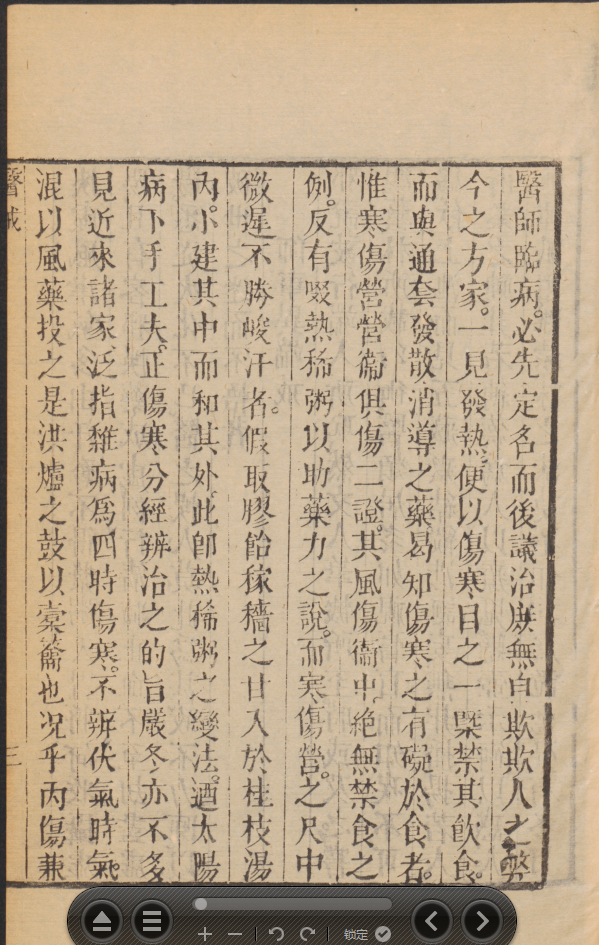 醫師臨病。必先定名而後議治庶無自欺欺人之弊
今之方家。一見發熱。便以傷寒目之一槩禁其飲食。
而與通套發散消導之藥曷知傷寒之有礙於食者。
惟寒傷營營衞俱傷二證。其風傷衞中絕無禁食之
例。反有啜熱稀粥以助藥力之說。而寒傷營。之尺中
微遲不勝峻汗者。假取膠飴稼穡之甘入於桂枝湯
內。小建其中而和其外。此卽熱稀粥之變法。迺太陽
病下手工夫。正傷寒分經辨治之的旨嚴冬亦不多
見近來諸家泛指雜病爲四時傷寒。不辨伏氣時氣。
混以風藥投之是洪爐之鼓以橐籥也况乎內傷兼
醫戒
三
鎖定